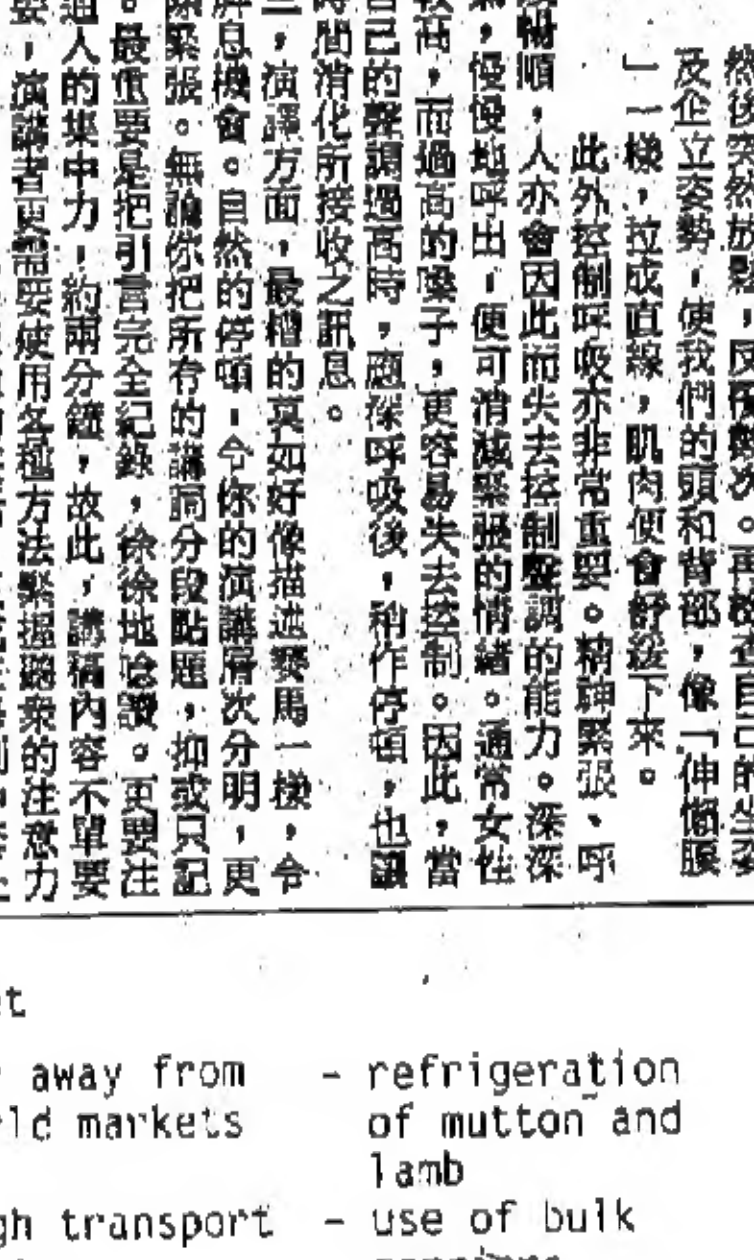 然後突然放鬆，反覆幾次。再檢查自己的坐姿
及企立姿勢，使我們的頭和背部，像「伸懶腰
」一樣，拉成直線，肌肉便會舒緩下來。
此外控制呼吸亦非常重要。精神緊張、呼
暢順，人亦會因此而失去控制聲調的能力。深深
，慢慢地呼出，便可消減緊張的情緒。通常女性
較高，而過高的嗓子，更容易失去控制。因此，當
自己的聲調過高時，應深呼吸後，稍作停頓，也讓
時間消化所接收之訊息。
，演講方面，最糟的莫如好像描述賽馬一樣，令
屏息機會。自然的停頓，令你的演講層次分明，更
除緊張。無論你把所有的講詞分段點題，抑或只記
。最重要是把引言完全紀錄，徐徐地唸讀。更要注
通人的集中力，約兩分鐘，故此，講稿內容不單要
要，演講者更需要使用各種方法緊握聽衆的注意力
et
away from
rld markets
gh transport
- refrigeration
of mutton and
lamb
- use of bulk